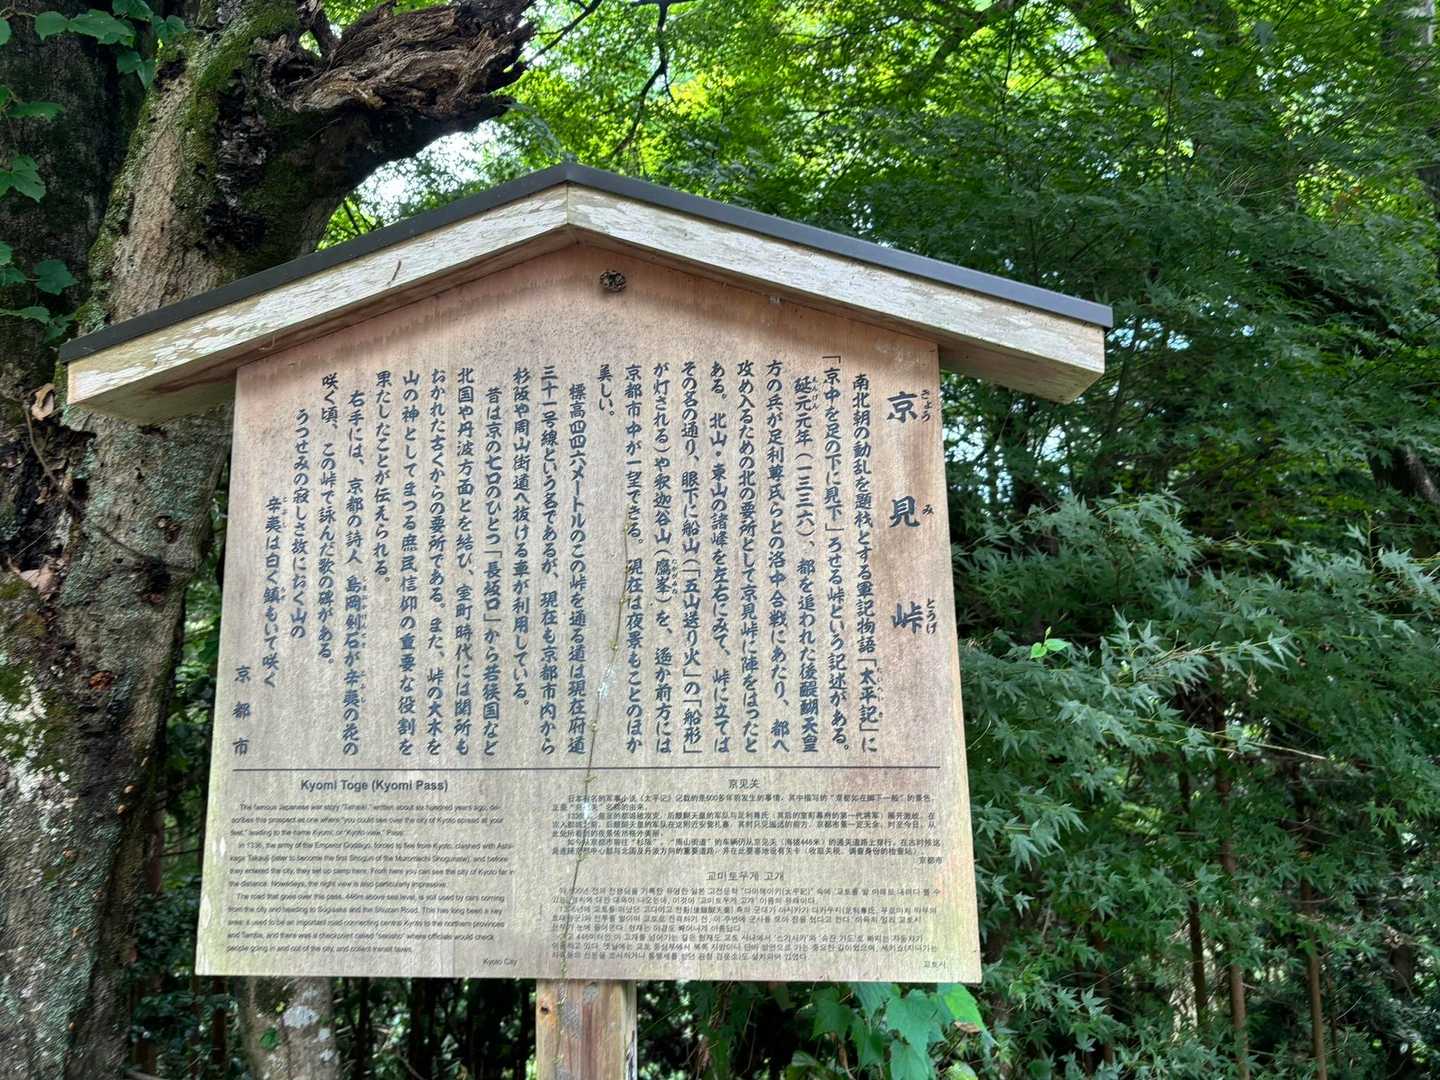 京見峠
きょう み とうげ
南北朝の動乱を題材とする軍記物語「太平記」に
「京中を足の下に見下」ろせる峠という記述がある。
延元元年(一三三六)、都を追われた後醍醐天皇
方の兵が足利尊氏らとの洛中合戦にあたり、都へ
攻め入るための北の要所として京見峠に陣をはったと
ある。北山・東山の諸峰を左右にみて、峠に立てば
その名の通り、眼下に船山(「五山送り火」の「船形」
が灯される)や釈迦谷山(鷹峯)を、遙か前方には
京都市中が一望できる。現在は夜景もことのほか
美しい。
標高四四六メートルのこの峠を通る道は現在府道
三十一号線という名であるが、現在も京都市内から
杉阪や周山街道へ抜ける車が利用している。
昔は京の七口のひとつ「長坂口」から若狭国など
北国や丹波方面とを結び、室町時代には関所も
おかれた古くからの要所である。また、峠の大木を
山の神としてまつる庶民信仰の重要な役割を
果たしたことが伝えられる。
右手には、京都の詩人 島岡剣石が辛夷の花の
咲く頃、この峠で詠んだ歌の碑がある。
うつせみの寂しさ故におく山の
辛夷は白く傾もいて咲く
京都市
Kyomi Toge (Kyomi Pass)
The famous Japanese war story "Taiheiki," written about six hundred years ago, de-
scribes this prospect as one where "you could see over the city of Kyoto spread at your
feet," leading to the name Kyomi, or "Kyoto-view," Pass.
In 1336, the army of the Emperor Godaigo, forced to flee from Kyoto, clashed with Ashi-
kaga Takauji (later to become the first Shogun of the Muromachi Shogunate), and before
they entered the city, they set up camp here. From here you can see the city of Kyoto far in
the distance. Nowadays, the night view is also particularly impressive.
The road that goes over this pass, 446m above sea level, is still used by cars coming
from the city and heading to Sugisaka and the Shuzan Road. This has long been a key
area: it used to be an important road connecting central Kyoto to the northern provinces
and Tamba, and there was a checkpoint called "sekisho" where officials would check
people going in and out of the city, and collect transit taxes.
Kyoto City
京见关
京都市
교미토우게 고개
교토시